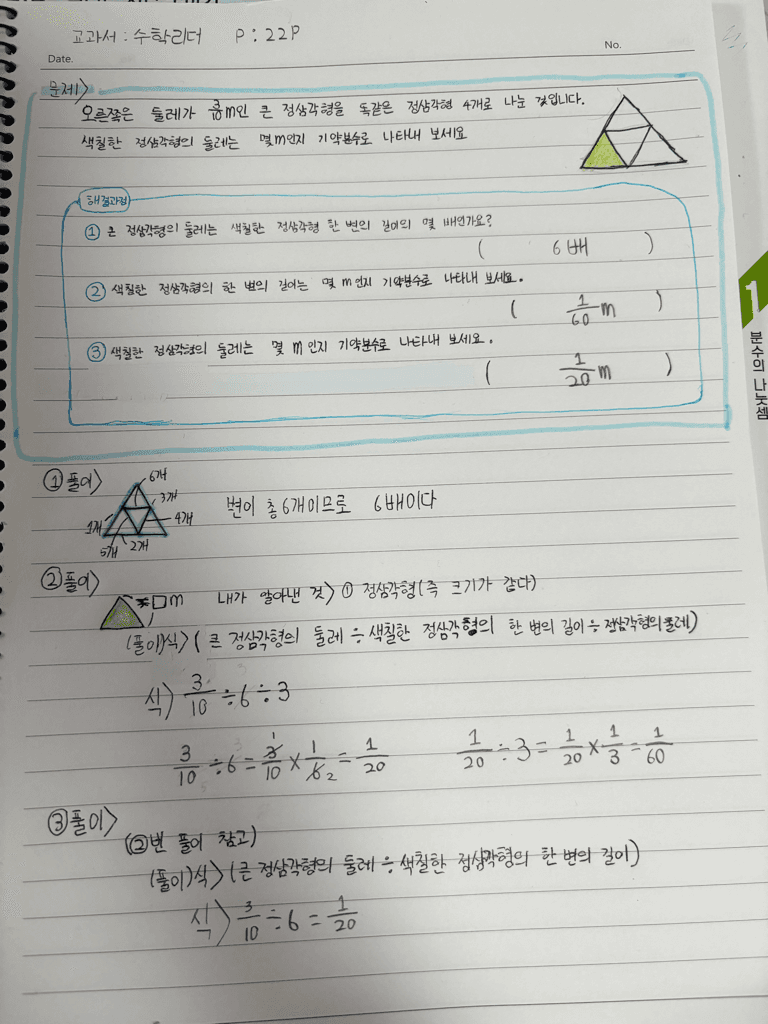 교과서 : 수학리더 P : 22P
Date.
No.
문제1>
오른쪽은 둘레가 3/10 m인 큰 정삼각형을 똑같은 정삼각형 4개로 나눈 것입니다.
색칠한 정삼각형의 둘레는 몇 m인지 기약분수로 나타내 보세요
해결과정
① 큰 정삼각형의 둘레는 색칠한 정삼각형 한 변의 길이의 몇 배인가요?
( 6배 )
② 색칠한 정삼각형의 한 변의 길이는 몇 m인지 기약분수로 나타내 보세요.
( 1/60 m )
③ 색칠한 정삼각형의 둘레는 몇 m인지 기약분수로 나타내 보세요.
( 1/20 m )
1
분수의 나눗셈
①풀이>
6개
3개
1개
4개
5개
2개
변이 총 6개이므로 6배이다
②풀이>
□m 내가 알아낸 것> ① 정삼각형(즉 크기가 같다)
(풀이)식> (큰 정삼각형의 둘레 ÷ 색칠한 정삼각형의 한 변의 길이 ÷ 정삼각형의 둘레)
식> 3/10 ÷ 6 ÷ 3
3/10 ÷ 6 = 3/10 × 1/6 = 1/20
1 2
1/20 ÷ 3 = 1/20 × 1/3 = 1/60
③풀이>
(②번 풀이 참고)
(풀이)식> (큰 정삼각형의 둘레 ÷ 색칠한 정삼각형의 한 변의 길이)
식> 3/10 ÷ 6 = 1/20